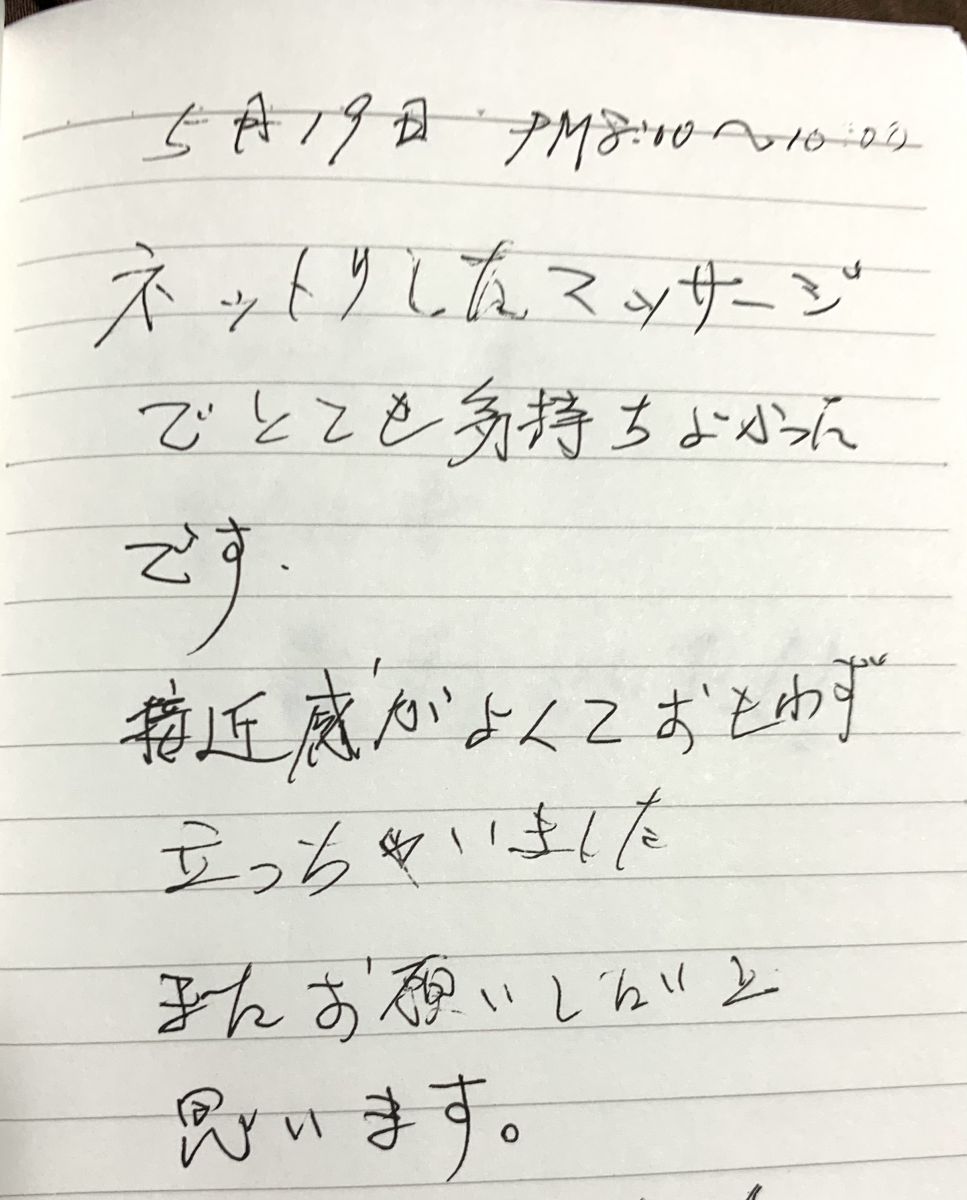 5月19日 PM8:00〜10:00
ネットリしたマッサージ
でとても気持ちよかった
です.
接近感がよくておもわず
立っちゃいました
またお願いしたいと
思います。